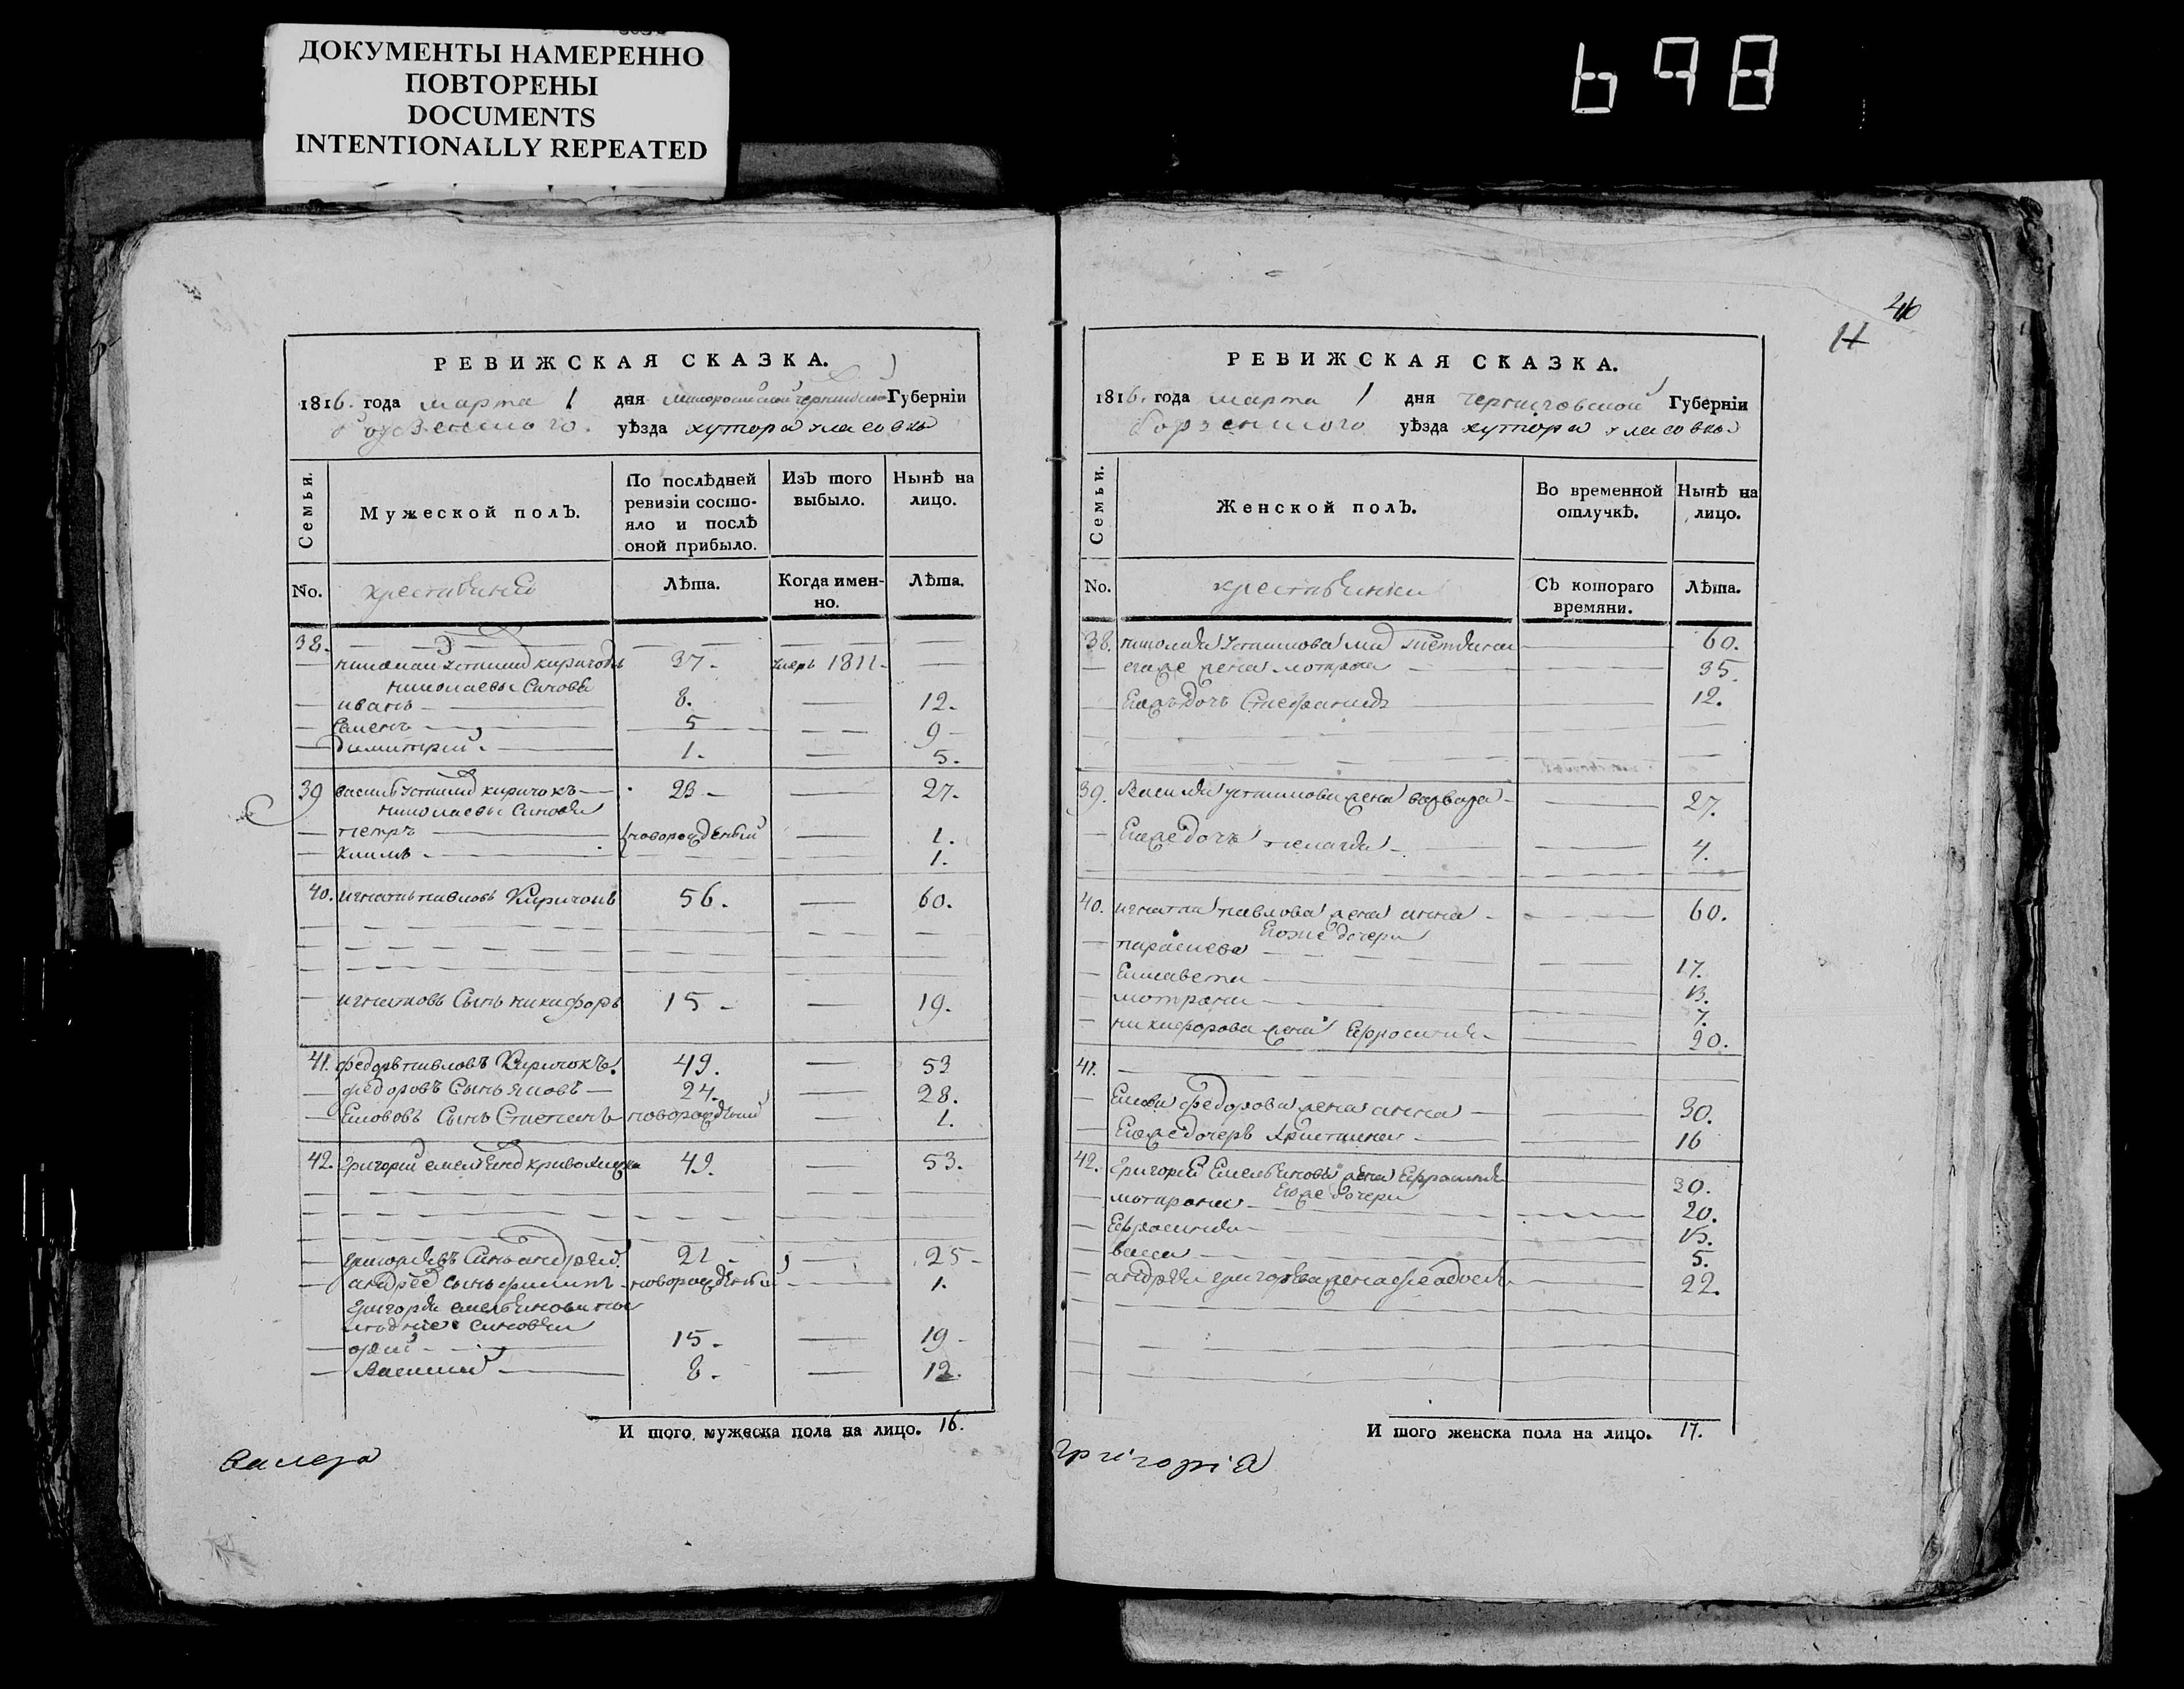 ДОКУМЕНТЫ НАМЕРЕННО
ПОВТОРЕНЫ
DOCUMENTS
INTENTIONALLY REPEATED
698
РЕВИЖСКАЯ СКАЗКА.
1816. года марта 1 дня Малоросийской черниговской Губерніи
борзенского. уѣзда хутора
Семьи.
Мужеской полъ.
По послѣдней ревизіи состояло и послѣ оной прибыло.
Изъ того выбыло.
Нынѣ на лицо.
No.
Лѣта.
Когда именно.
Лѣта.
38.
николай устимов киричокъ 37. умеръ 1811
николаевы синовя
иванъ 8. 12.
семенъ 5 9
димитрий 1. 5.
39 василь устимов киричокъ 23 27.
николаевы синовя
петръ новорожденый 1.
климъ 1.
40. игнатъ павловъ Киричокъ 56. 60.
игнатовъ Сынъ никифоръ 15 19.
41. федоръ павловъ Киричокъ. 49. 53
федоровъ Сынъ яковъ 24. 28.
Сынъ Степанъ новорожденый 1.
42. григорий емельянов 49. 53.
григориевъ Синъ андрей. 21 25
андрея сынъ филипъ новорожденый 1.
григория емельянова
синовя
15. 19
Василий 8. 12.
И того мужеска пола на лицо. 16.
40
РЕВИЖСКАЯ СКАЗКА.
1816. года марта 1 дня черниговской Губерніи
борзенского уѣзда хутора
Семьи.
Женской полъ.
Во временной отлучкѣ.
Нынѣ на лицо.
No.
Съ котораго времяни.
Лѣта.
38. николая устимова 60.
егоже жена мотрона 35.
Егожъ дочъ Стефанида 12.
39. Василия устимова жена варвара 27.
Егоже дочъ пелагия 4.
40. игната павлова жена анна 60.
Егоже дочери
параскева 17.
Елисавета 13.
мотрона 7.
никифорова жена Ефросиния 20.
41.
федорова жена анна 30.
Егоже дочеръ христина 16
42. григория Емельянова жена Ефросиния 30.
Егоже дочери
мотрона 20.
Ефросиния 13.
васса 5.
андрея григорева жена феодосия 22.
И того женска пола на лицо. 17.
григорія